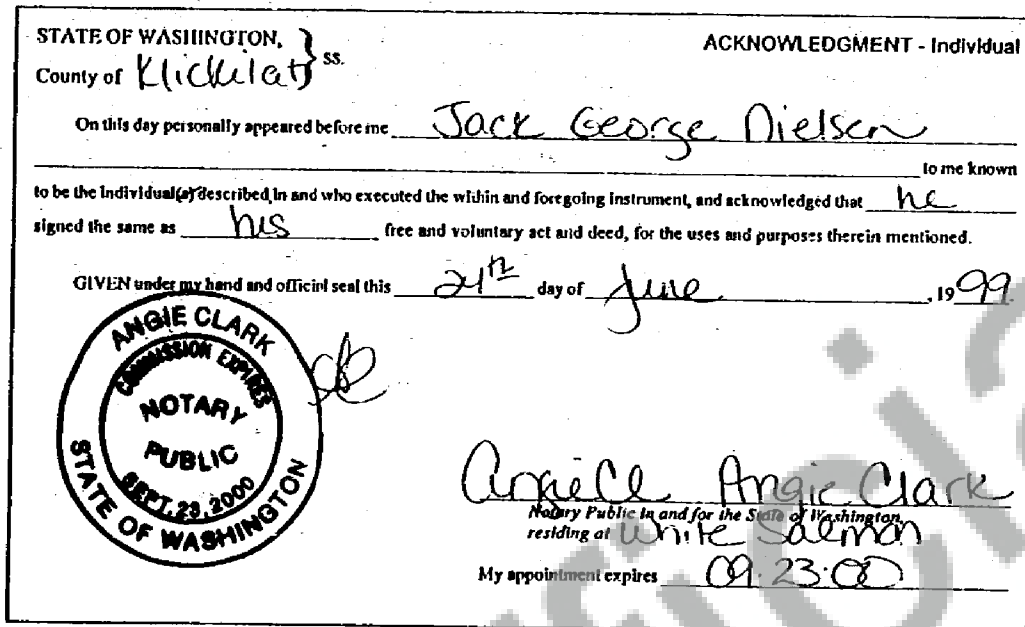 STATE OF WASHINGTON, } ss.
ACKNOWLEDGMENT - Individual
County of Klickitat
On this day personally appeared before me Jack George Nielsen
to me known
to be the individual(s) described in and who executed the within and foregoing instrument, and acknowledged that he
signed the same as his free and voluntary act and deed, for the uses and purposes therein mentioned.
GIVEN under my hand and official seal this 24th day of June, 1999.
ANGIE CLARK
COMMISSION EXPIRES
NOTARY
PUBLIC
SEPT. 23, 2000
STATE OF WASHINGTON
Angie Clark
Notary Public in and for the State of Washington,
residing at White Salmon
My appointment expires 09-23-00